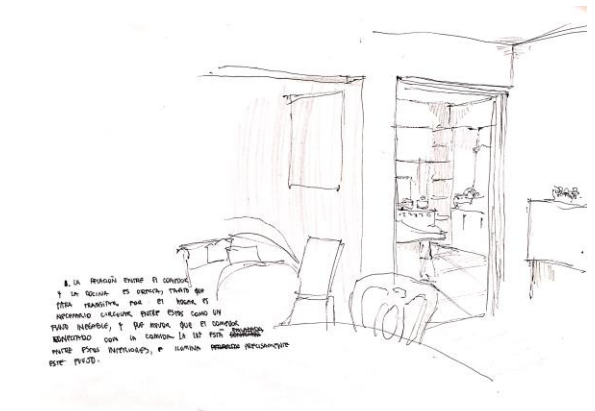 1. LA RELACIÓN ENTRE EL COMEDOR
Y LA COCINA ES DIRECTA, TANTO QUE
PARA TRANSITAR POR EL HOGAR ES
NECESARIO CIRCULAR ENTRE ESTOS COMO UN
FLUJO INEGABLE, Y POR QUE EL COMEDOR
CONECTADO CON LA COMIDA. LA LUZ ESTÁ
ENTRE ESTOS INTERIORES, E ILUMINA PRECISAMENTE
ESTE FLUJO.